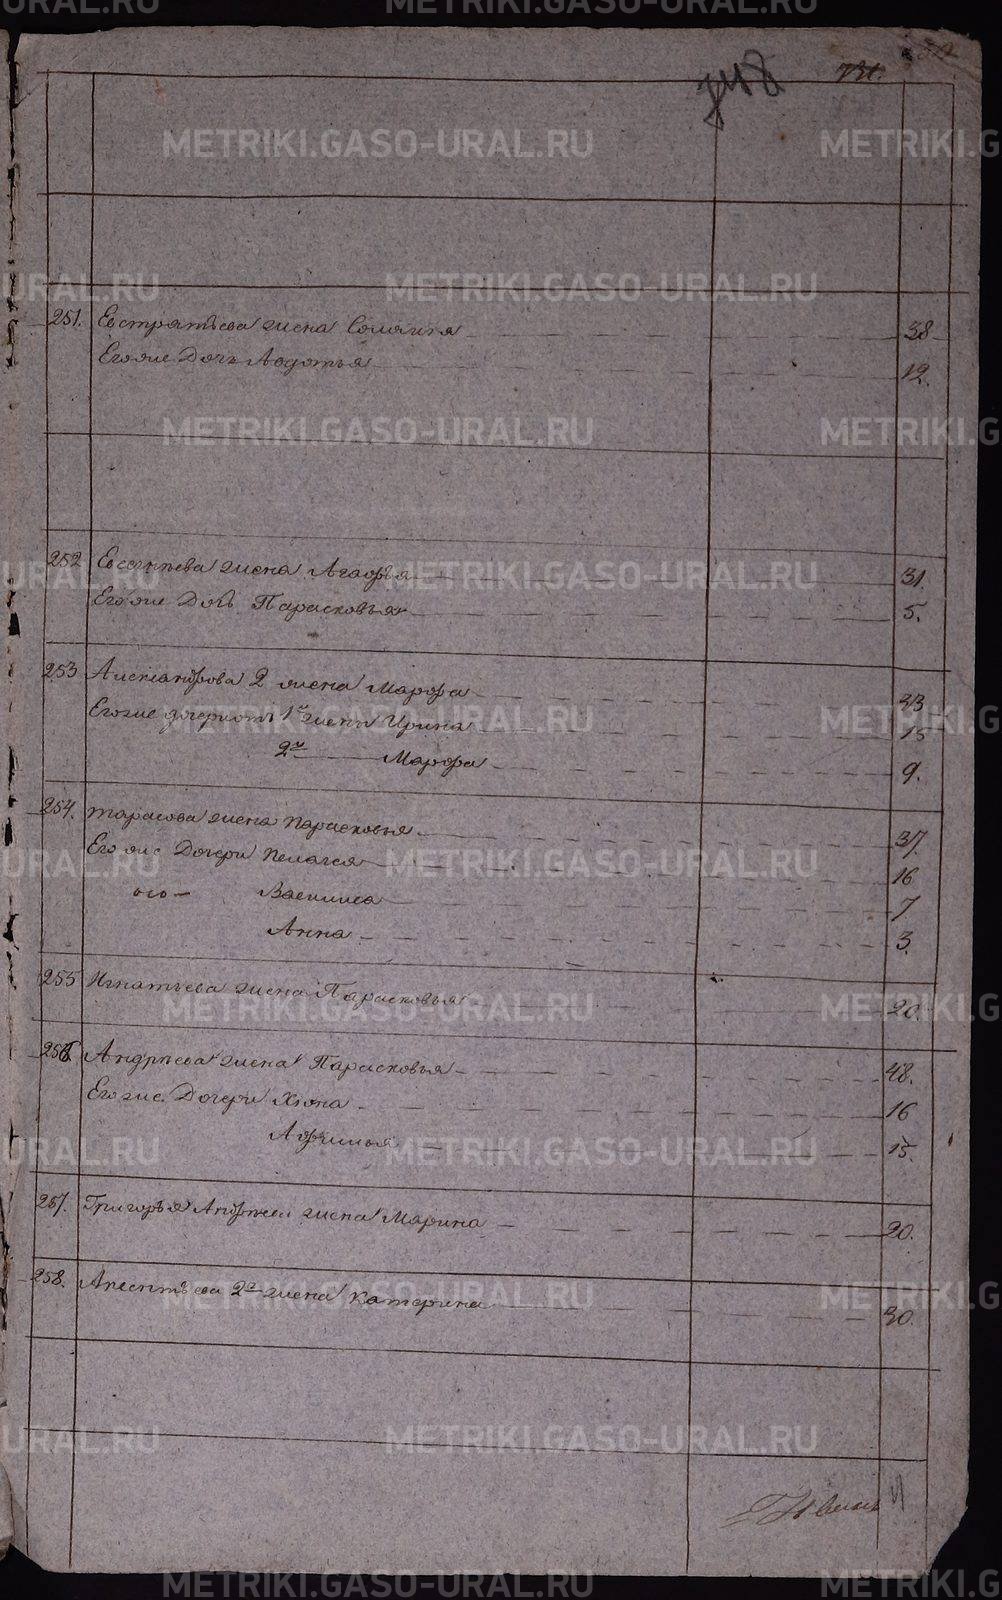 748
731.
251. Евстратьева жена Соломия 38
Его же Дочь Авдотья 12.
252 Евсегнѣева жена Агафья 31.
Его же Дочь Парасковья 5.
253 Александрова 2 жена Марфа 33
Его же дочери отъ 1й жены Ирина 15
2й Марфа 9.
254. Тарасова жена Парасковья 37.
Его же Дочери Пелагея 16
Василиса 7
Анна 3.
255 Игнатьева жена Парасковья 20.
256 Андрѣева жена Парасковья 48.
Его же Дочери Хiона 16
Афимья 15.
257. Григорья Андрѣева жена Марина 20.
258. 2я жена Катерина 30.
METRIKI.GASO-URAL.RU